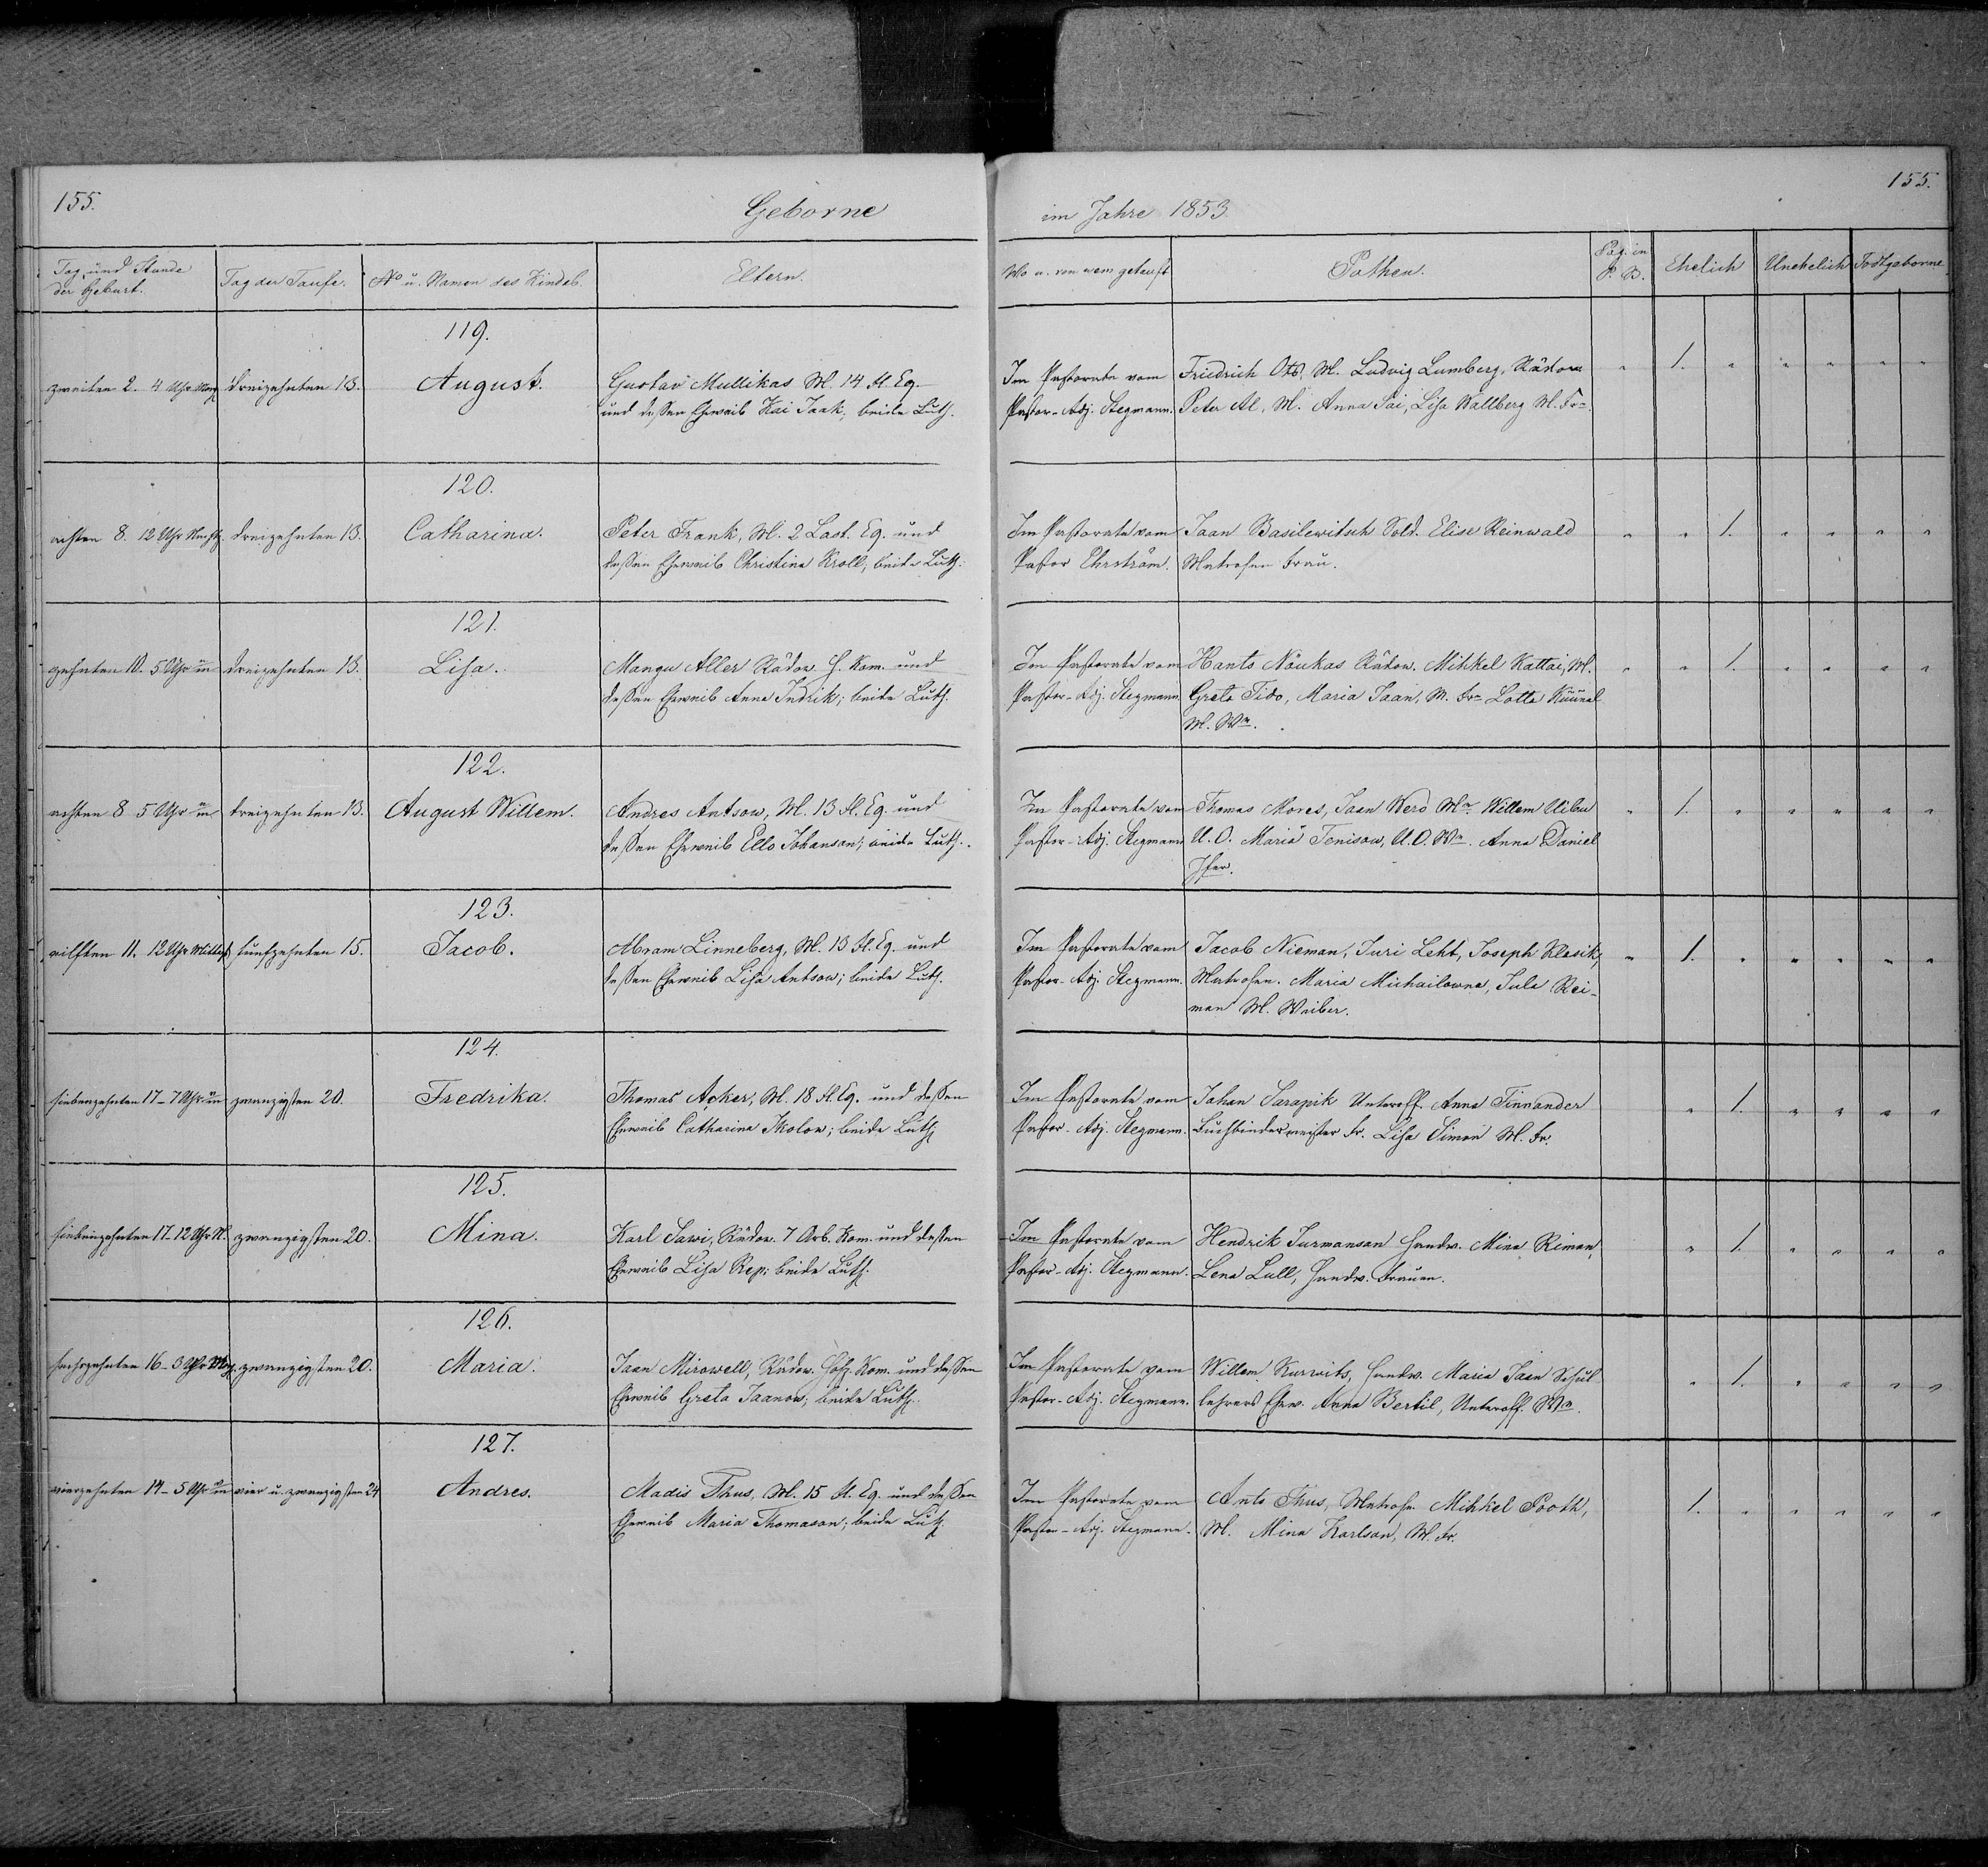 155.
Geborne
im Jahre 1853.
155.
Tag und Stunde
der Geburt.
Tag der Taufe.
No u. Namen des Kindes.
Eltern.
Wo u. von wem getauft
Pathen.
Pag. in
P. B.
Ehelich
Unehelich
Todtgeborne
119.
zweiten 2. 4 Uhr Morg. dreizehnten 13. August. Gustav Mullikas M. 14 Fl. Eq.
und dessen Eheweib Kai Jaak, beide Luth.
Im Pastorate vom Friedrich Ots, M. Ludvig Lumberg, Kadow
Pastor-Adj. Stegmann. Peter Al, M. Anna Sai, Lisa Wallberg M. Fr. 1.
120.
achten 8. 12 Uhr dreizehnten 13. Catharina. Peter Frank, M. 2 Last. Eq. und
dessen Eheweib Christina Kroll, beide Luth.
Im Pastorate vom Jaan Basilewitsch Sold. Elise Reinwald
Pastor Ehrström. Matrosen Frau. 1.
121.
zehnten 10. 5 Uhr dreizehnten 13. Lisa. Mangu Aller Kadow. H. Kom. und
dessen Eheweib Anna Indrik; beide Luth.
Im Pastorate vom Hants Nöukas Kadow. Mihkel Kattai, M.
Pastor-Adj. Stegmann Greta Tido, Maria Jaan, M. Fr. Lotta Küünal
M. We. 1.
122.
achten 8 5 Uhr dreizehnten 13. August Willem. Andres Antsow, M. 13 Fl. Eq. und
dessen Eheweib Ello Johanson; beide Luth.
Im Pastorate vom Thomas Mores, Jaan Kerd Willem Uibu
Pastor-Adj. Stegmann U. O. Maria Tenisow, U. O. We. Anna Daniel
Jfer. 1.
123.
eilften 11. 12 Uhr Mittag fünfzehnten 15. Jacob. Abram Linneberg, M. 13 Fl. Eq. und
dessen Eheweib Lisa Antsow; beide Luth.
Im Pastorate vom Jacob Nieman, Juri Leht, Joseph Klasik,
Pastor-Adj. Stegmann. Matrosen. Maria Michailowna, Jula Rei-
man M. Weiber. 1.
124.
siebenzehnten 17-7 Uhr zwanzigsten 20. Fredrika. Thomas Acker, M. 18 Fl. Eq. und dessen
Eheweib Catharina Ikolow; beide Luth.
Im Pastorate vom Johan Sarapik Unteroff. Anna Tinnander
Pastor-Adj. Stegmann. Buchbindermeister Fr. Lisa Simon M. Fr. 1.
125.
siebenzehnten 17. 12 Uhr N. zwanzigsten 20. Mina. Karl Sawi, Kadow. 7 Arb. Kom. und dessen
Eheweib Lisa Rep; beide Luth.
Im Pastorate vom Hendrik Jurmanson Handw. Mina Riman,
Pastor-Adj. Stegmann. Lena Lull, Handw. Frauen. 1.
126.
sechszehnten 16-3 Uhr Morg. zwanzigsten 20. Maria. Jaan Mirowell, Kadow. Kom. und dessen
Eheweib Greta Jaanow; beide Luth.
Im Pastorate vom Willem Kurwits, Handw. Maria Jaan Schul
Pastor-Adj. Stegmann. lehrers Ehew. Anna Bertil, Unteroff. We. 1.
127.
vierzehnten 14-5 Uhr vier u. zwanzigsten 24 Andres. Madis Thus, M. 15 Fl. Eq. und dessen
Eheweib Maria Thomason; beide Luth.
Im Pastorate vom Ants Thus, Matrose Mihkel Pooth,
Pastor-Adj. Stegmann. M. Mina Karlson, M. Fr. 1.